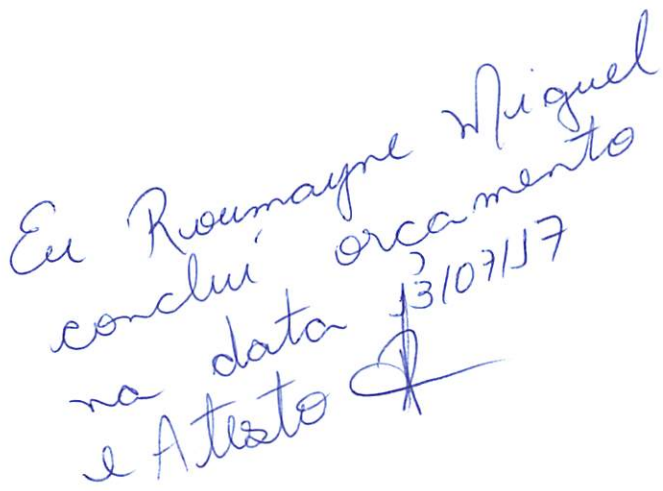 Eu Roumayne Miguel
concluí orçamento
na data 13/07/17
e Atesto